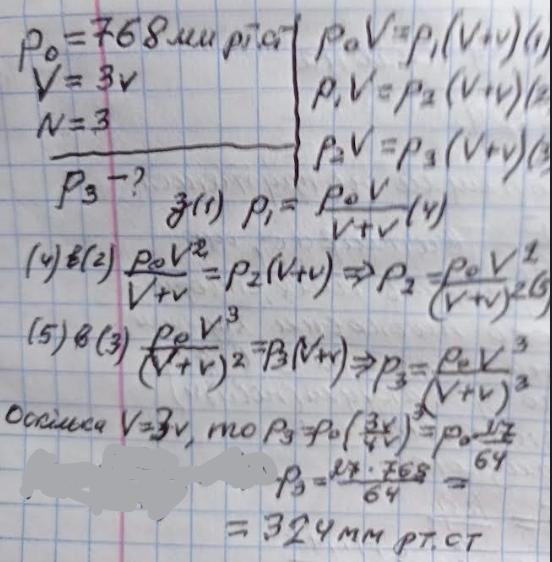 p₀ = 768 мм рт.ст
V = 3v
N = 3
p₃ - ?
p₀V = p₁(V+v) (1)
p₁V = p₂(V+v) (2
p₂V = p₃(V+v) (3
з (1) p₁ = p₀V/(V+v) (4)
(4) в (2) p₀V²/(V+v) = p₂(V+v) ⇒ p₂ = p₀V²/(V+v)² (5)
(5) в (3) p₀V³/(V+v)² = p₃(V+v) ⇒ p₃ = p₀V³/(V+v)³
Оскілька V=3v, то p₃ = p₀(3v/4v)³ = p₀ 27/64
p₃ = 27·768/64 =
= 324 мм рт.ст